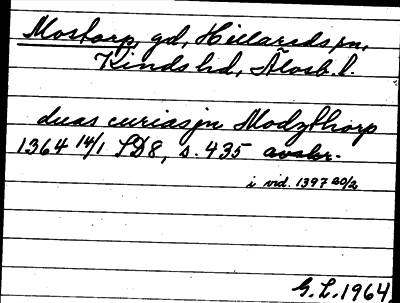 Mostorp, gd, Hillareds sn,
Kinds hd, Älvsb. l.
duas curias jn Modzthorp
1364 14/1 SD8, s. 435 avskr.
i vid. 1397 20/2
G. L. 1964